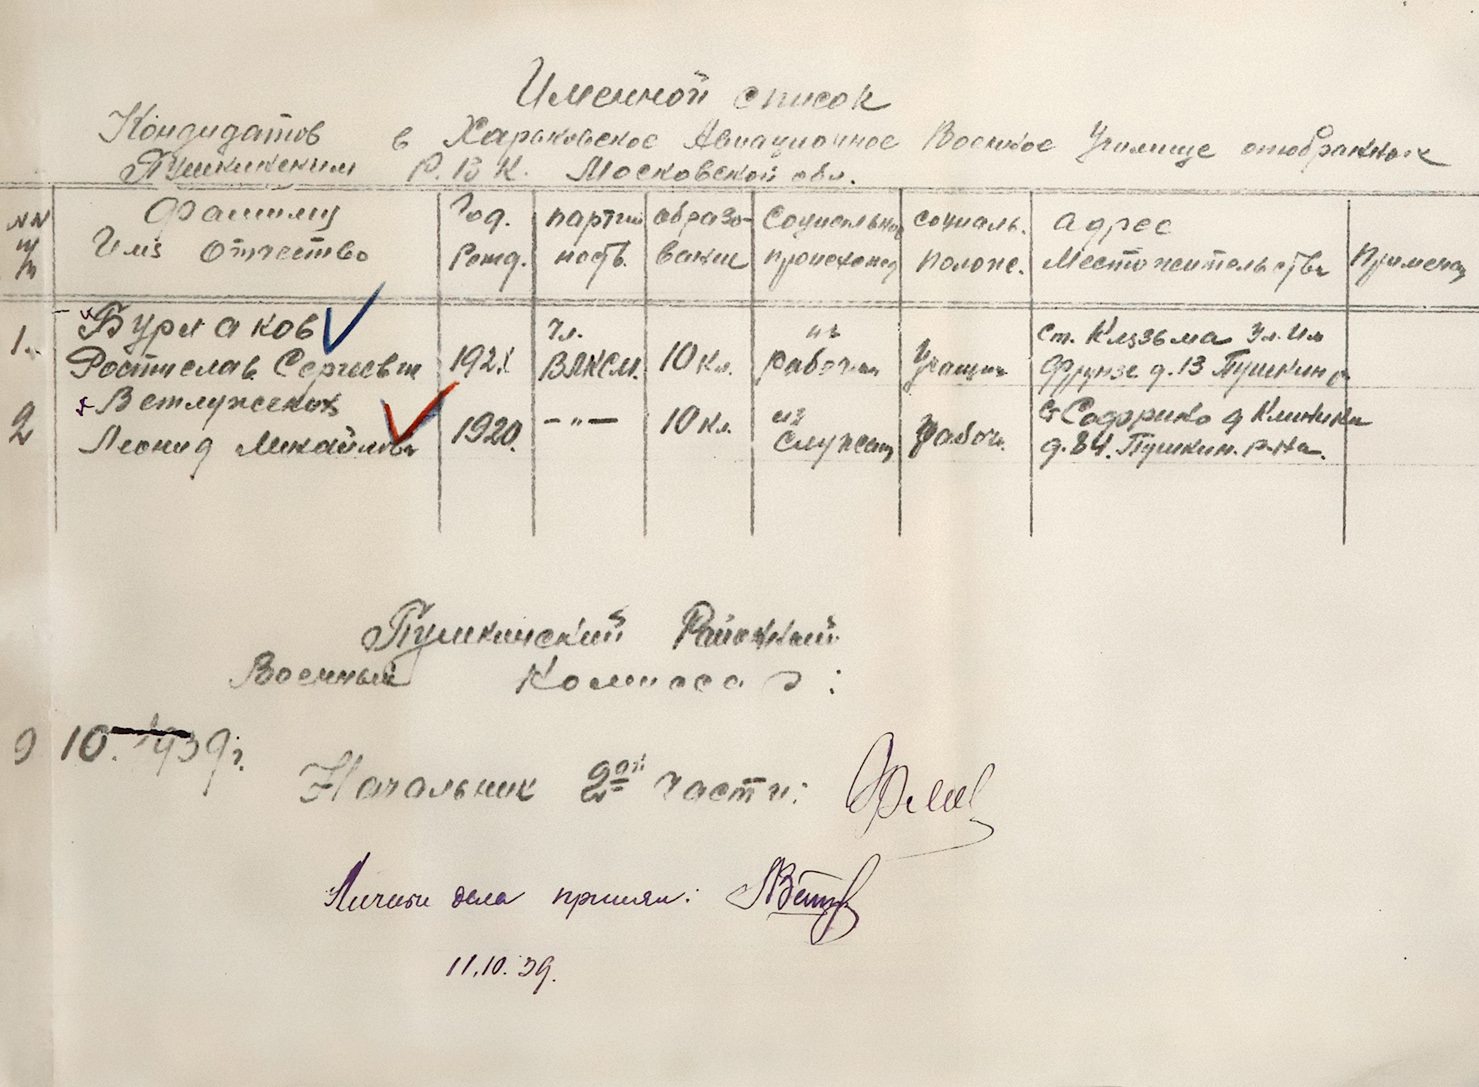 Именной список
Кандидатов в Харьковское Авиационное Военное Училище отобранных
Пушкинским Р.В.К. Московской обл.
NN п/п
Фамилия Имя Отчество
Год. Рожд.
партий ность.
образо- вание
Социальное происхожд
социаль. полож.
адрес Местожительства
Примечан
1.
Бурлаков Ростислав Сергеевич
1921
чл. ВЛКСМ.
10 кл.
из рабочих
Учащийс
ст. Клязьма Ул. Им Фрунзе д. 13 Пушкин р
2
Ветлужских Леонид Михайлов
1920.
—"—
10 кл.
из Служащ
рабоч.
Ст Софрино д Клиники д. 84. Пушкин. р-на.
Пушкинский Районный
Военный Комиссар:
9 10. 1939 г.
Начальник 2ой части:
Личные дела принял:
11.10.39.